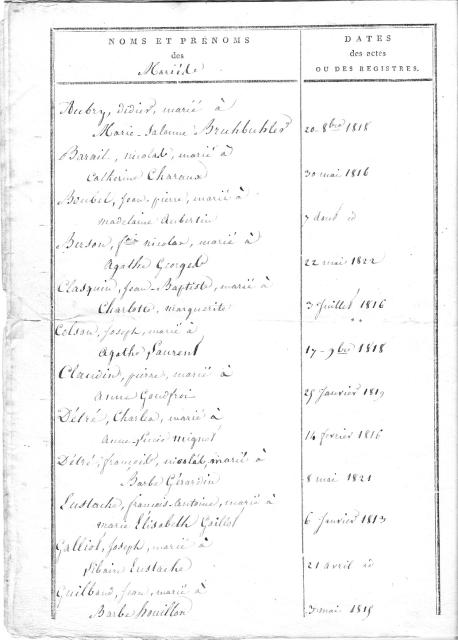 NOMS ET PRÉNOMS
des
Mariés
DATES
des actes
OU DES REGISTRES.
Aubry, didier, marié à
Marie-Salomé Bruhbuhler 20 8bre 1818
Barail, nicolas, marié à
Catherine Charaux 30 mai 1816
Beubel, Jean-pierre, marié à
madelaine Aubertin 7 août id
Berson, fçois nicolas, marié à
Agathe Georges 22 mai 1822
Clasquin, Jean-Baptiste, marié à
Charlotte, marguerite 3 Juillet 1816
Colson, Joseph, marié à
Agathe Laurent 17 9bre 1818
Claudin, pierre, marié à
Anne Goudfroi 25 Janvier 1819
Détré, Charles, marié à
Anne mignot 14 février 1816
Détré, françois, nicolas, marié à
Barbe Gérardin 8 mai 1821
Eustache, françois-Antoine, marié à
marie Elisabeth Galliot 6 Janvier 1813
Galliot, Joseph, marié à
Eustache 21 avril id
Guilbaud, Jean, marié à
Barbe houillon 3 mai 1815